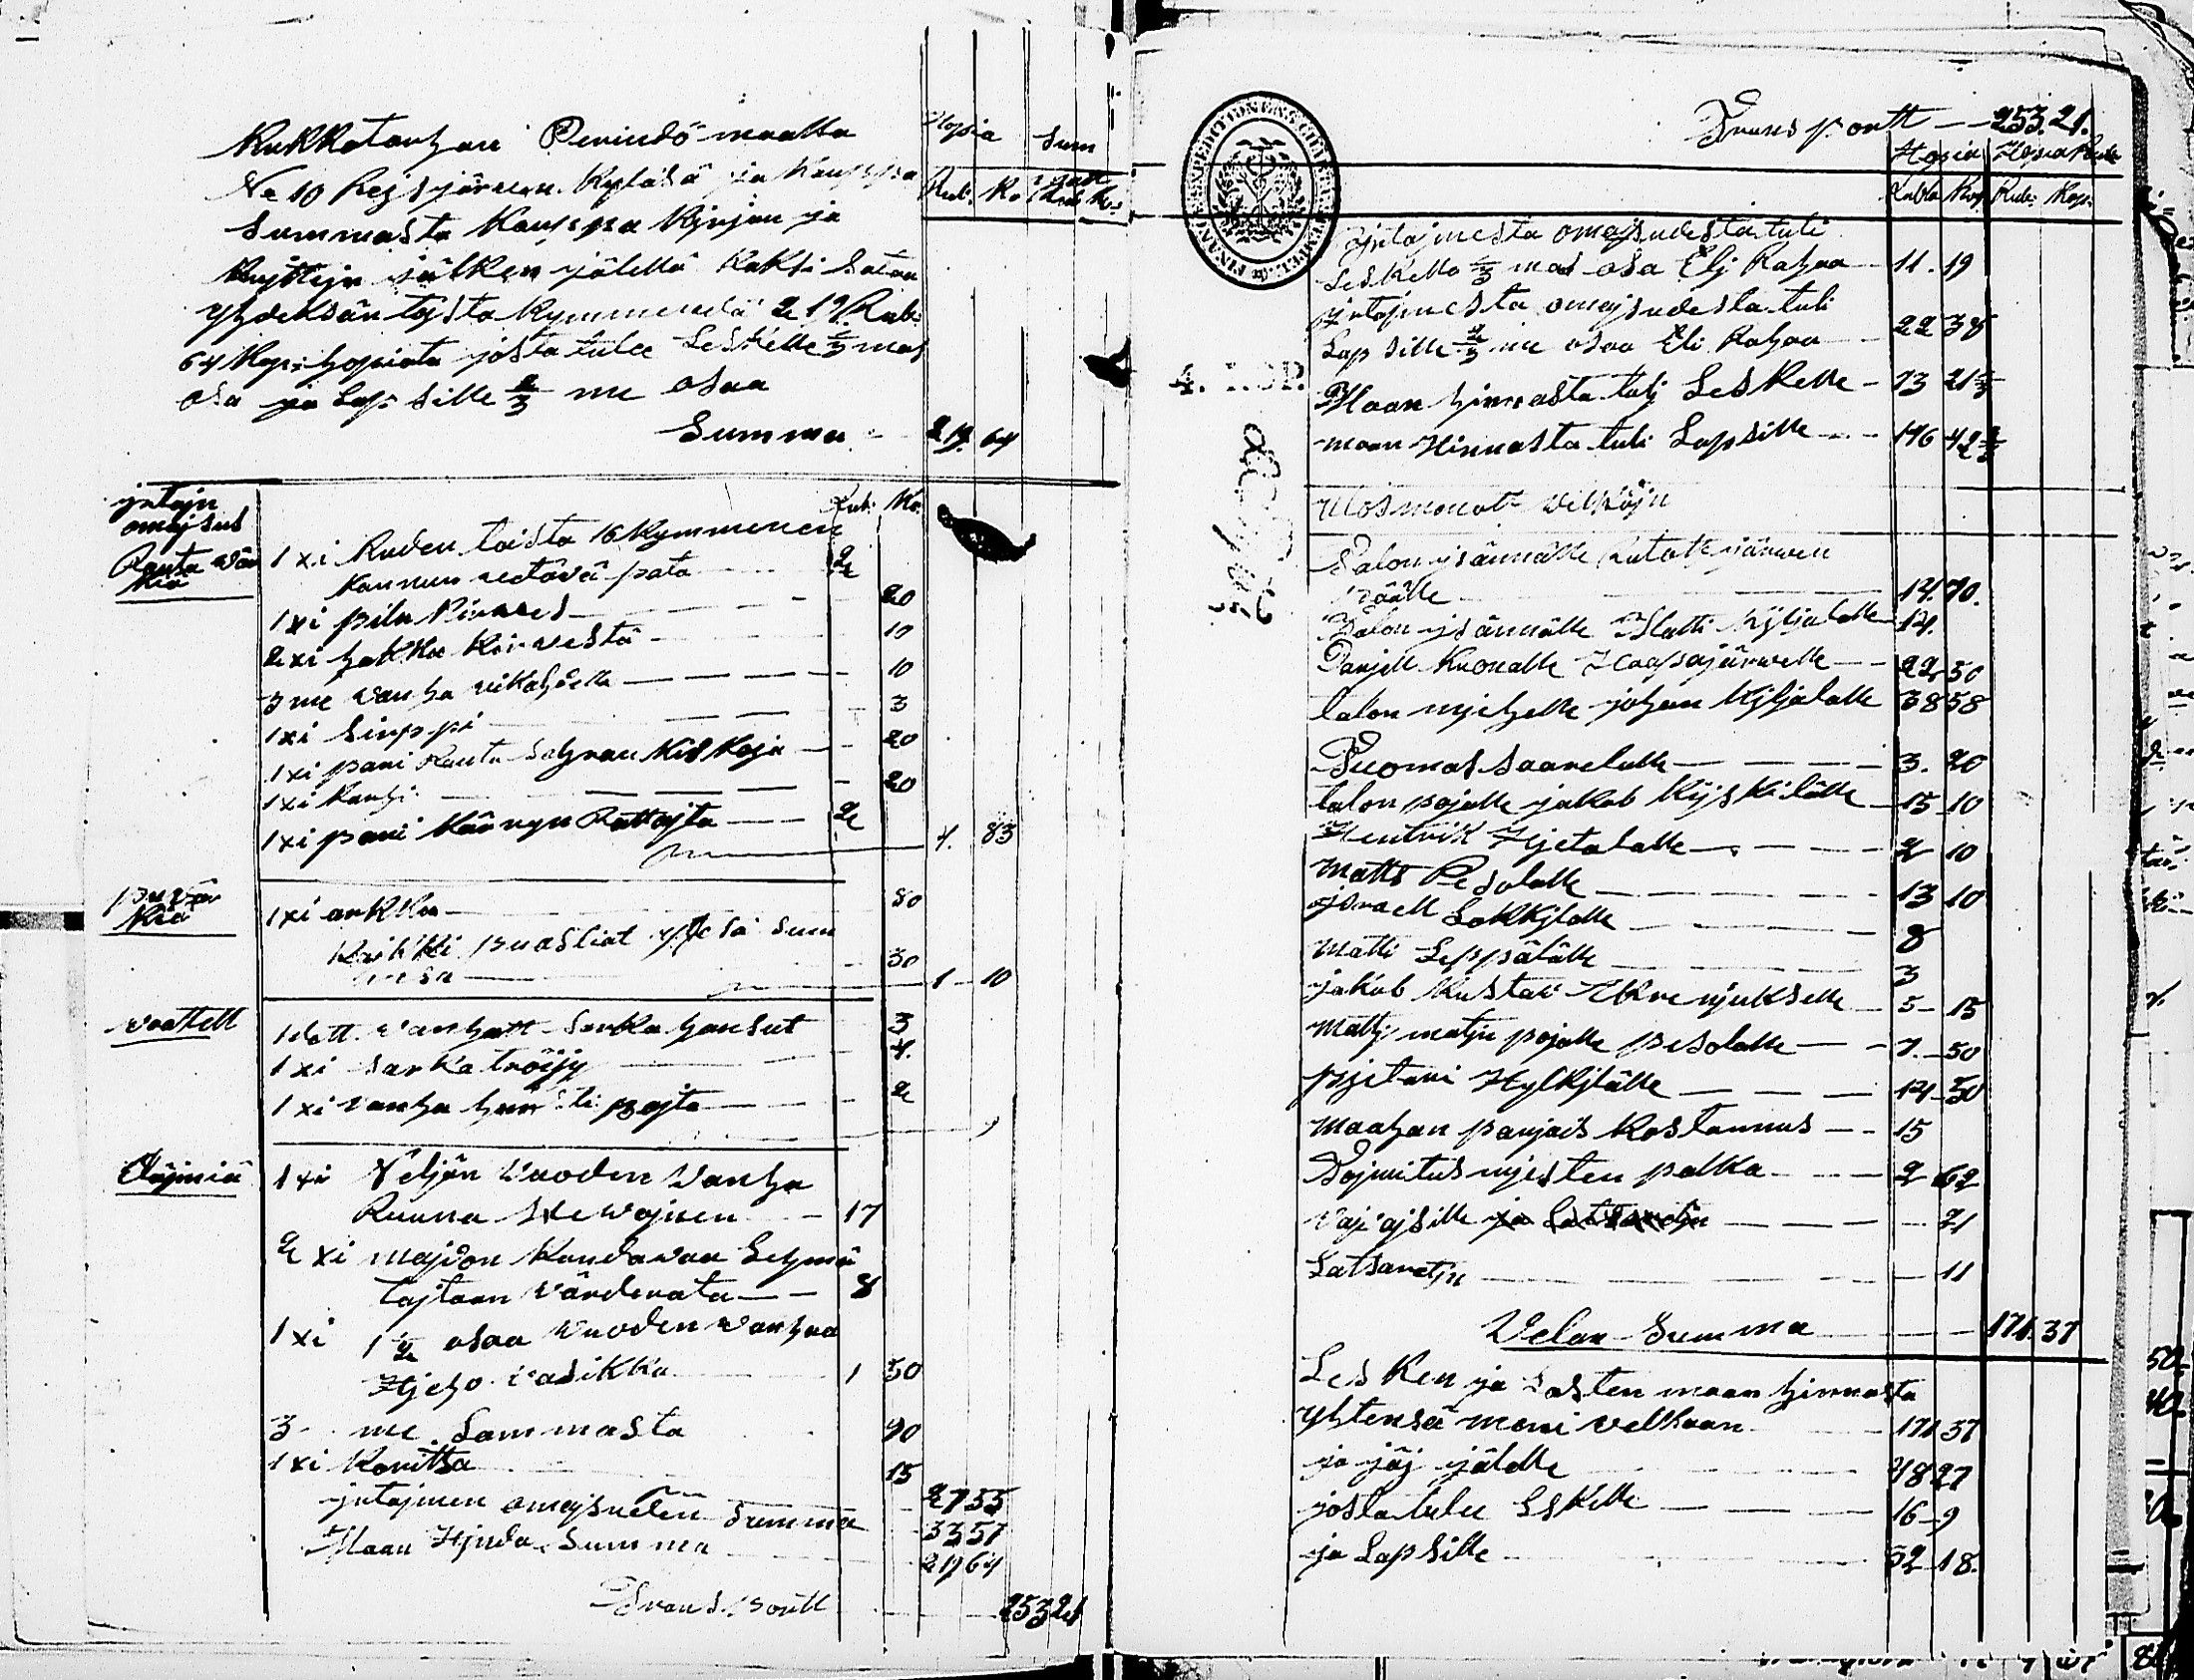 Kukkotarhan Perindö maatta
No 10 Rejsjärven Kyläsä ja Kauppa
Summasta Kauppa Kirjan ja
jälken jälellä Kaksi Sataa
Yhdeksän tojsta kymmendä 219 Rub:
64 Kop: hopiata josta tulee Leskelle 1/3 mas
osa ja Lapsille 2/3 me osaa
Summa 219. 64
Hopia Sum
Rub. Ko.
jrtajn omajsus
Rub: Ko.
Rauta wär kia
1 xi Kuden toista 16 Kymmenen
Kannun vetävä pata 2
1 xi piiluKirwes 20
2 xi hakku Kirvestä 10
3 me vanha vikahdetta 10
1 xi Sirppi 3
1 xi pari Rauta Sahran Kiskoja 20
1 xi Kanhi 20
1 xi pari Käärryn Rattajta 2
4. 83
puuvär kiä
1 xi arkku 80
Kaikki puuastiat yhtesä sum
masa 30
1 10
vaattett
1 dett. vanhatt Sarka housut 3
1 xi Sarka tröijy 4.
1 xi vanha hursti pejte 2
Eläjmiä
1 xi Neljän Vuoden Vanha
Ruuna Hevojnen 17
2 xi majdon Kandavaa Lehmä
tajtaan Värderata 8
1 xi 1 1/2 osaa Vuoden vanhaa
Hjeho vasikka 1 50
3 me Lammasta 90
1 xi Koritta 15
27 55
jrtajmen omajsuden Summa 33 57
Maan Hjnda Summa 219 64
Transportt 253 21
Transportt 253. 21.
Hopia Hopia Rub
Rubla Kop Rub: Kop:
jrtajmesta omajsudesta tuli
Leskelle 1/3 mas osa Elj Rahaa 11. 19
jrtajmesta omajsudesta tuli
Lapsille 2/3 me osaa Eli Rahaa 22 38
Maan hinnasta tulj Leskelle 73 21 1/3
maan Hinnasta tuli Lapsille 146 42 2/3
4. KOP.
Ulosmenott Velkojn
Talon jsännälle järwen
päälle 14. 70.
Talon jsännälle Matti Kiljalalle 14.
Danjell Kuonalle Haapajärwelle 22 50
talon mjehelle johan Kiljalalle 38 58
Tuomas Saarelalle 3. 20
talon pojalle jakob Kijskilälle 15 10
Hentrik Hjetalalle 2 10
Matts Pesolalle 13 10
jsraell Lokkjlalle 8
Matti Leppälälle 3
jakob Kustav 5 15
Mattj matjn pojalle pesolalle 7. 50
pjetari Hylkjlälle 14 50
Maahan panjais Kostannus 15
Tojmitusmjesten palka 2 62
Vajvajsille 21
Latsaretjn 11
Velan Summa 171. 37
Lesken ja Lasten maan hinnasta
Yhtensä meni velkaan 171 37
ja jäj jälelle 48 27
josta tulee Leskelle 16 9
ja Lapsille 32 18.